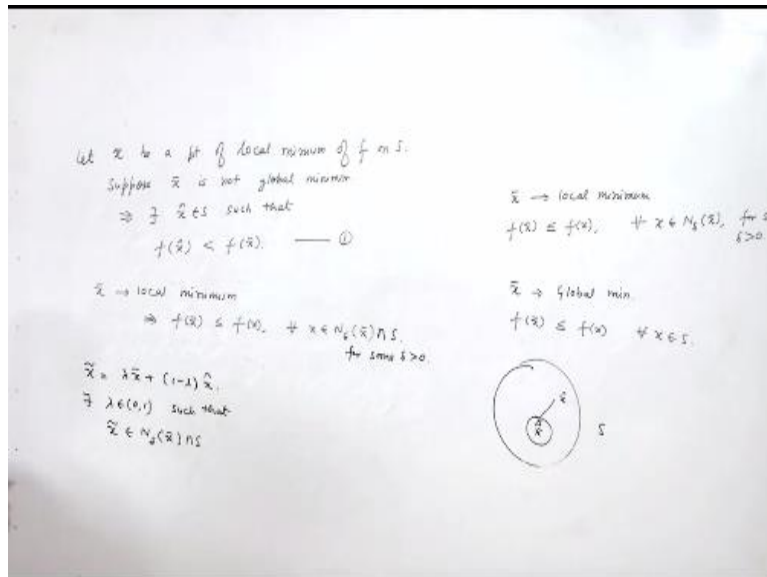 Let x̄ be a pt of local minimum of f on S.
Suppose x̄ is not global minimum
⇒ ∃ x̂ ∈ S such that
f(x̂) < f(x̄). —— ①
x̄ → local minimum
⇒ f(x̄) ≤ f(x), ∀ x ∈ N_δ(x̄) ∩ S.
for some δ > 0.
x̃ = λx̄ + (1-λ) x̂.
∃ λ ∈ (0,1) such that
x̃ ∈ N_δ(x̄) ∩ S
x̄ → local minimum
f(x̄) ≤ f(x), ∀ x ∈ N_δ(x̄), for
δ > 0.
x̄ → Global min.
f(x̄) ≤ f(x) ∀ x ∈ S.
x̂
x̄
S